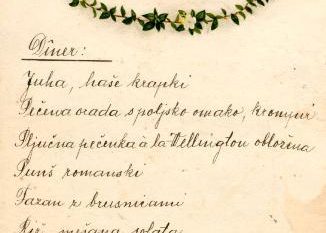 Dîner:
Juha, haše krapki
Pečena orada s poljsko omako, krompir
Pljučna pečenka à la Wellington obložena
Punš romanski
Fazan z brusnicami
Riž, mešana solata